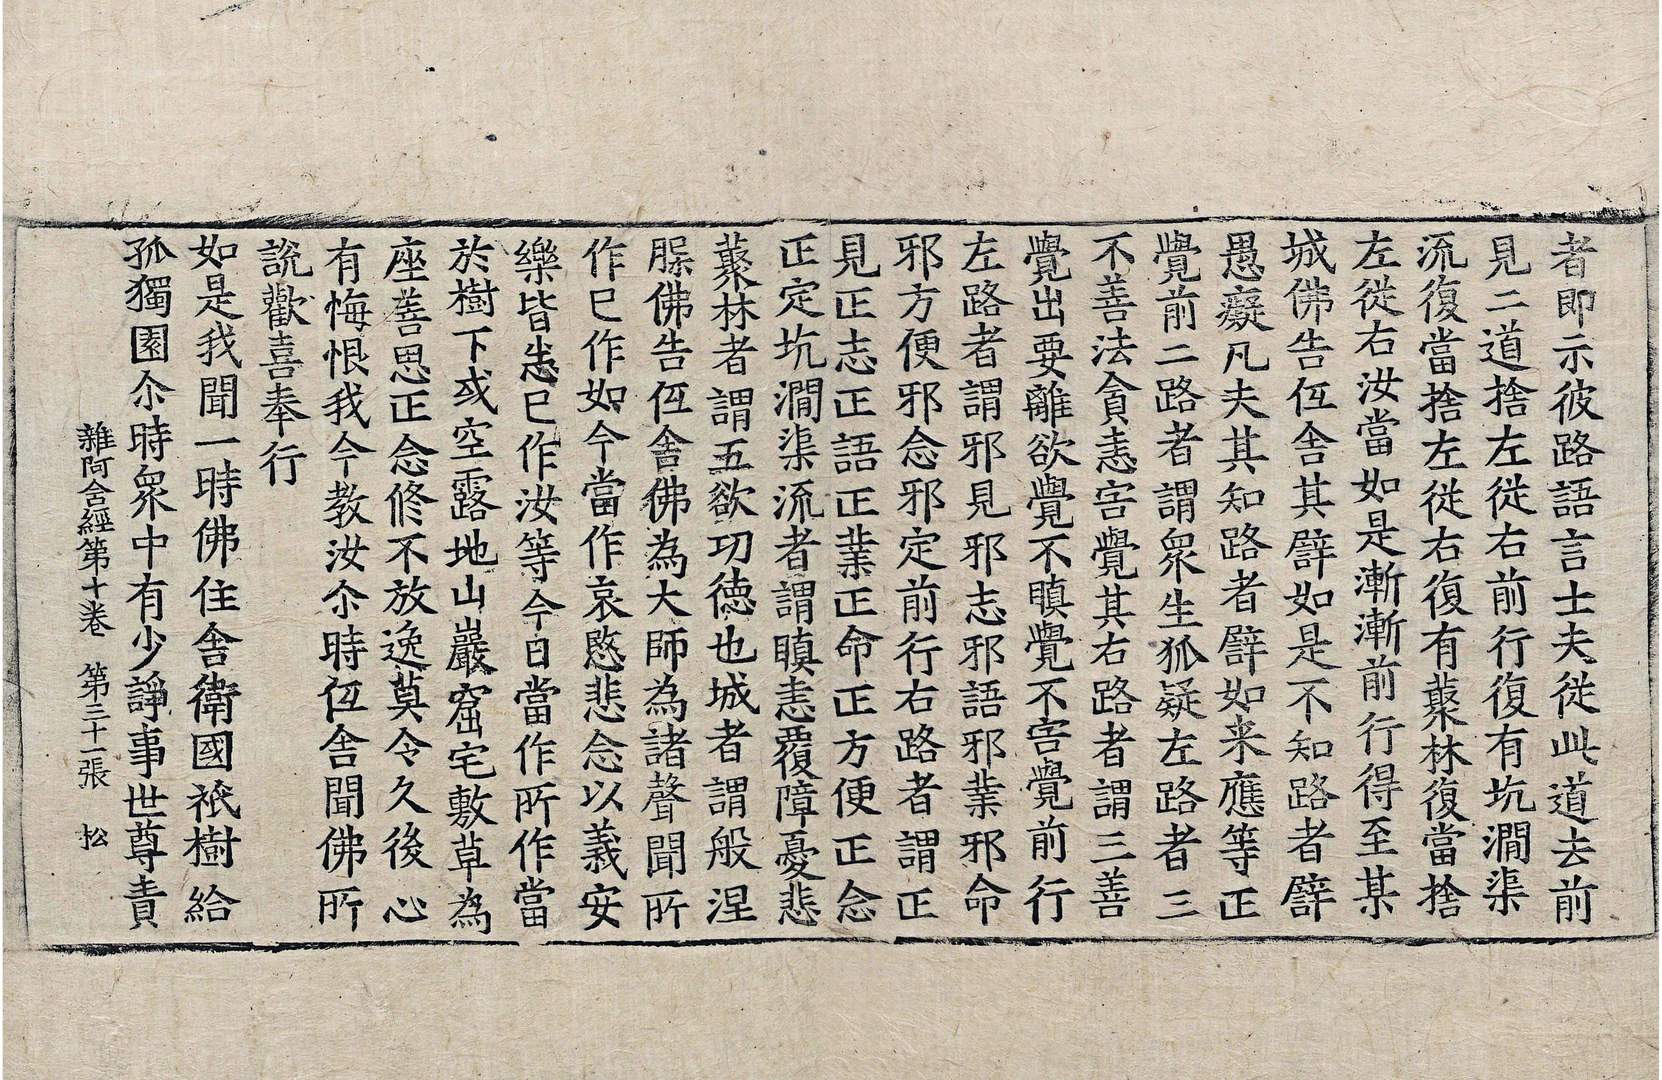 者即示彼路語言士夫從此道去前
見二道捨左從右前行復有坑澗渠
流復當捨左從右復有䕺林復當捨
左從右汝當如是漸漸前行得至某
城佛告仾舍其譬如是不知路者譬
愚癡凡夫其知路者譬如来應等正
覺前二路者謂衆生狐疑左路者三
不善法貪恚害覺其右路者謂三善
覺出要離欲覺不瞋覺不害覺前行
左路者謂邪見邪志邪語邪業邪命
邪方便邪念邪定前行右路者謂正
見正志正語正業正命正方便正念
正定坑澗渠流者謂瞋恚覆障憂悲
䕺林者謂五欲功德也城者謂般涅
槃佛告仾舍佛為大師為諸聲聞所
作已作如今當作哀愍悲念以義安
樂皆悉已作汝等今日當作所作當
於樹下或空露地山巖窟宅敷草為
座善思正念修不放逸莫令久後心
有悔恨我今教汝尒時仾舍聞佛所
說歡喜奉行
如是我聞一時佛住舍衛國祇樹給
孤獨園尒時衆中有少諍事世尊責
雜阿含經第十卷 第三十一張 松